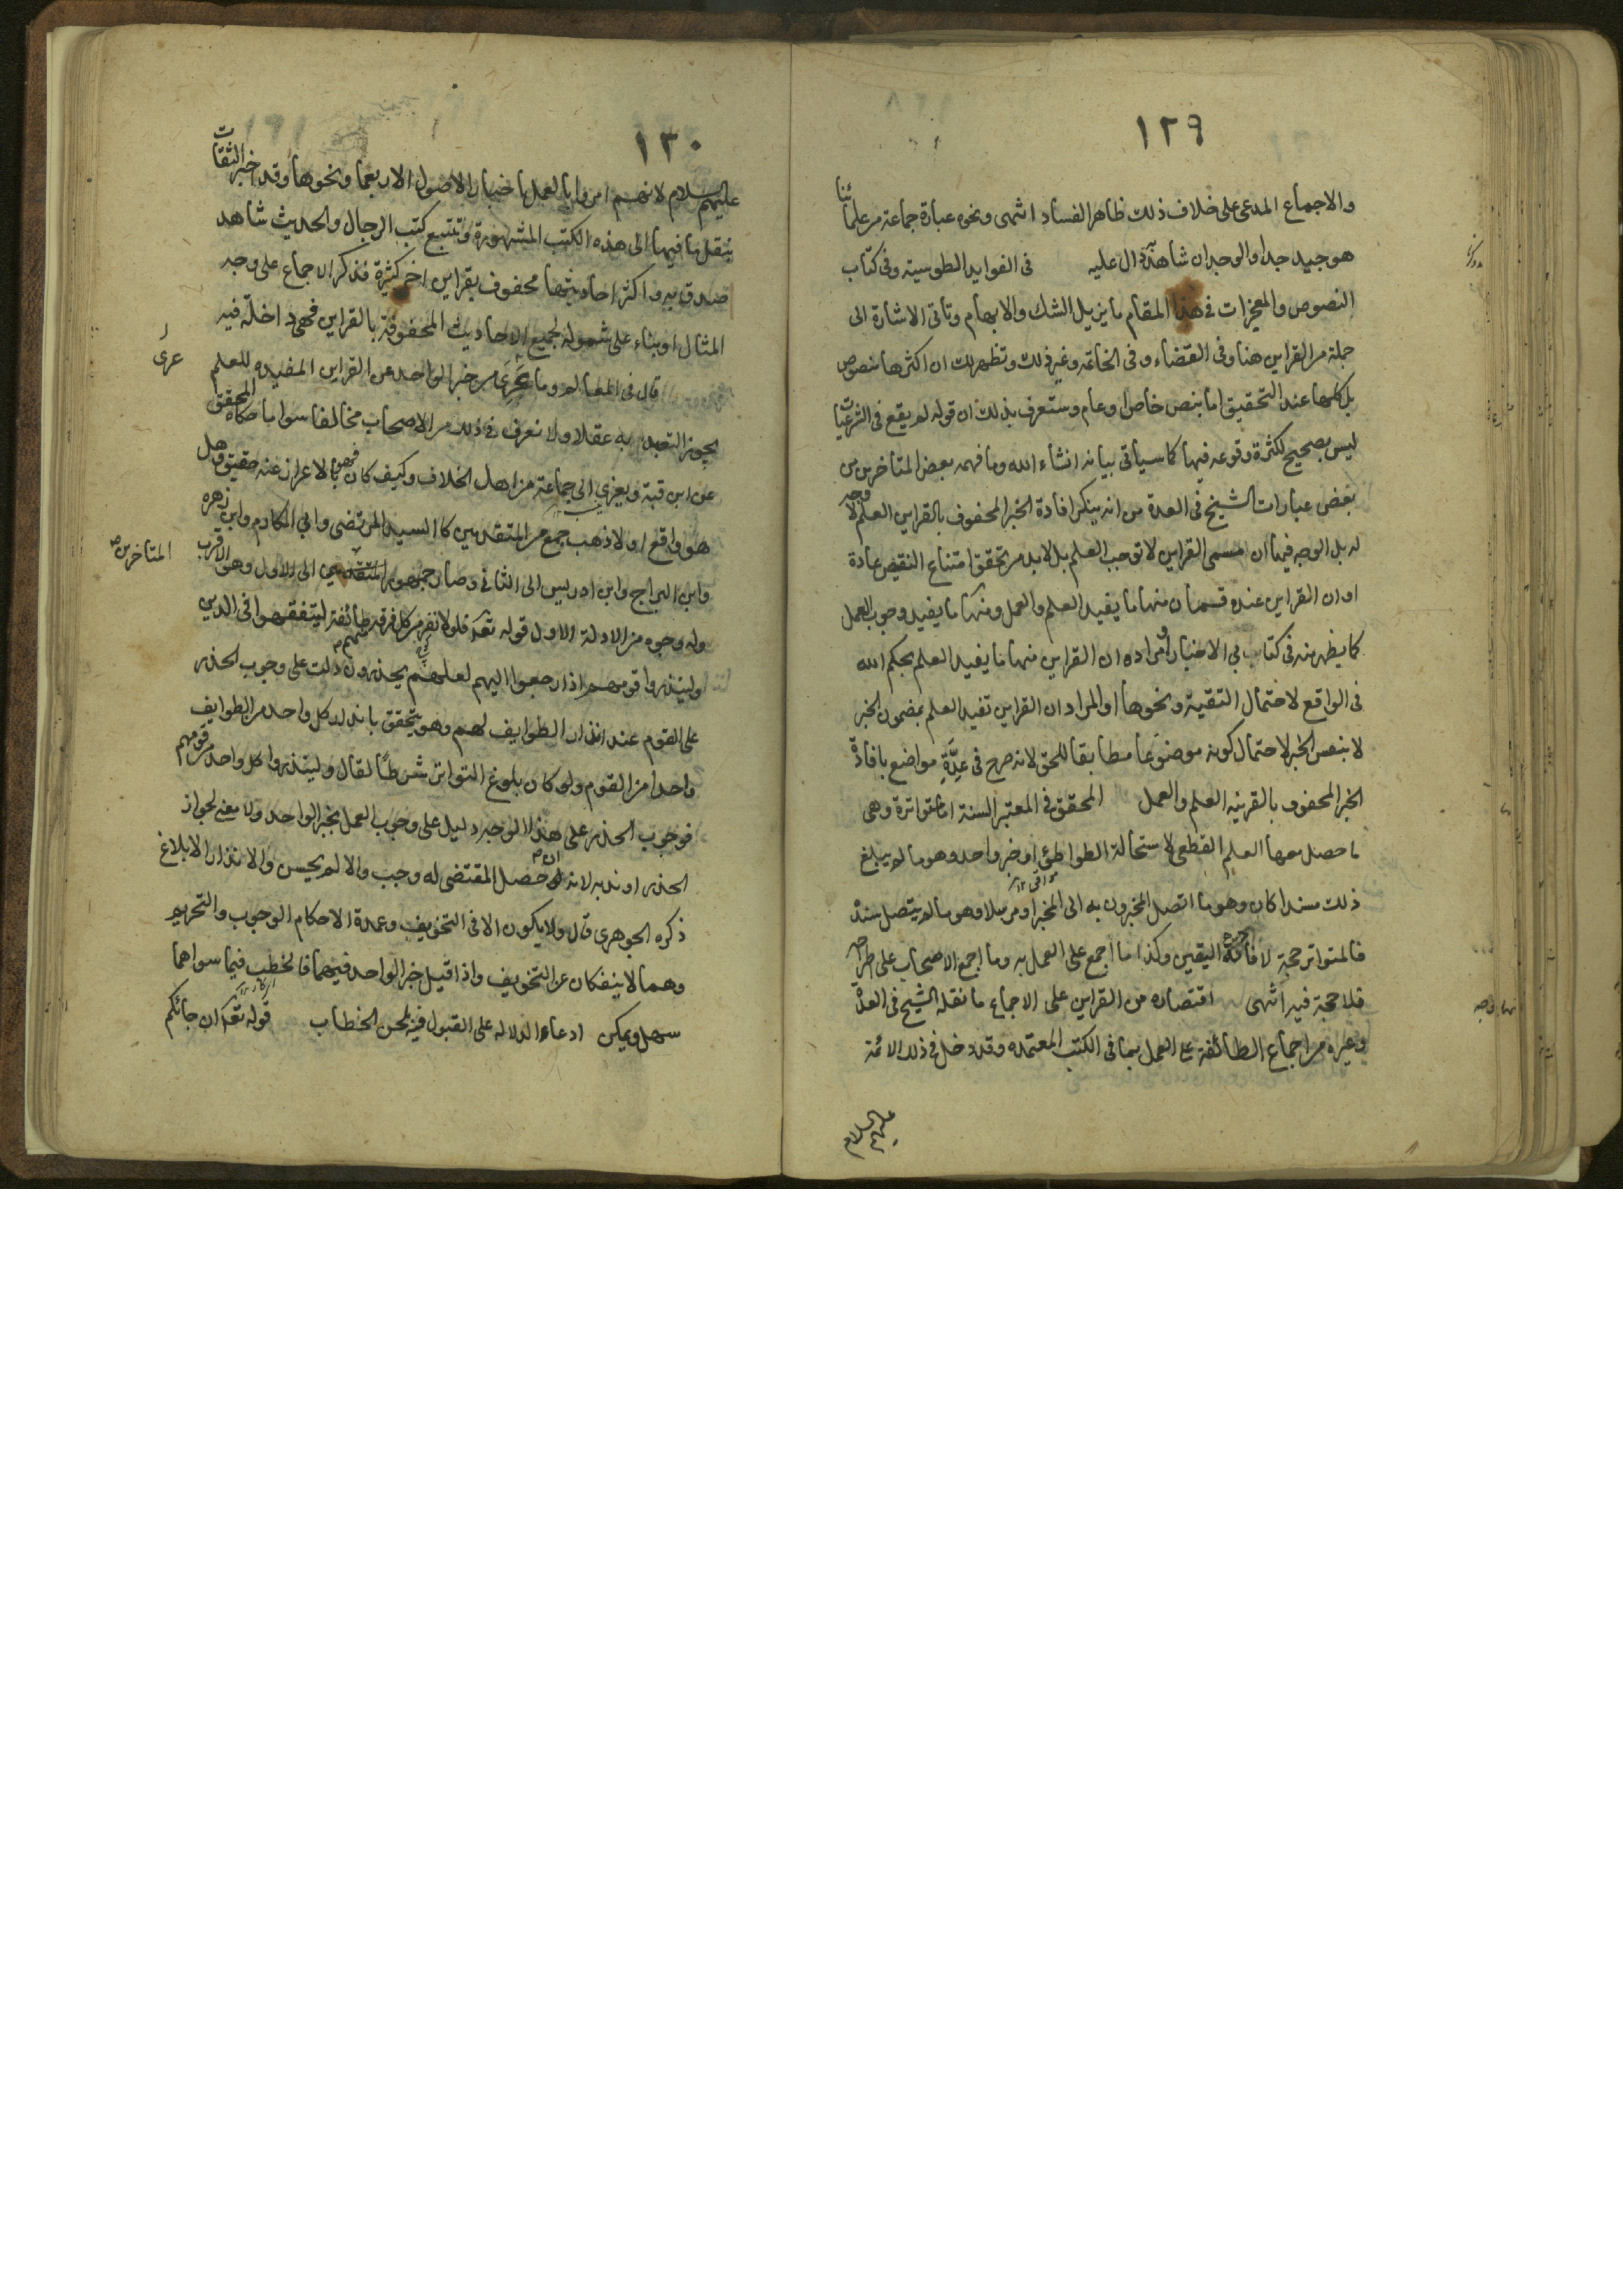 ١٢٩
والاجماع المدعى على خلاف ذلك ظاهر الفساد انتهى ونحوه عبارة جماعة من علمائنا
هو جيد جدا والوجدان شاهد دال عليه في الفوايد الطوسية وفي كتاب
النصوص والمعجزات في هذا المقام ما يزيل الشك والابهام وتاتى الاشارة الى
جملة من القراين هنا وفى القضاء وفى الخاتمه وغير ذلك وتظهر لك ان اكثرها منصوص
بل كلها عند التحقيق اما بنص خاص او عام وستعرف بذلك ان قوله لم يقع فى الشرعيات
ليس بصحيح لكثرة وقوعه فيها كما سياتى بيانه انشاء الله وما فهمه بعض المتاخرين من
بعض عبارات الشيخ فى العدة من انه ينكر افادة الخبر المحفوف بالقراين العلم لا وجه
له بل الوجه فيها ان مسمى القراين لا توجب العلم بل لا بد من تحقق امتناع النقيض عادة
او ان القراين عنده قسمان منها ما يفيد العلم والعمل ومنها ما يفيد وجوب العمل
كما يظهر منه فى كتابي الاخبار او مراده ان القراين منها ما يفيد العلم بحكم الله
فى الواقع لاحتمال التقية ونحوها او المراد ان القراين تفيد العلم بمضمون الخبر
لا بنفس الخبر لاحتمال كونه موضوعا مطابقا للحق لانه صرح فى عِدَّةِ مواضع بافادة
الخبر المحفوف بالقرينه العلم والعمل المحقق فى المعتبر السنة اما متواترة وهى
ما حصل معها العلم القطعى لاستحالة التواطئ او خبر واحد وهو ما لم يبلغ
ذلك مسندا كان وهو ما اتصل المخبرون به الى المخبر او مرسلا وهو ما لم يتصل سنده
فالمتواتر حجة لافادته اليقين وكذا ما اجمع على العمل به وما اجمع الاصحاب على اطراحه
فلا حجة فيه انتهى اقتصاره من القراين على الاجماع ما نقله الشيخ فى العدة
وغيره من اجماع الطائفة على العمل بما فى الكتب المعتمده وقد دخل فى ذلك الائمة
عليهم السلام
١٣٠
عليهم السلام لانهم امروا بالعمل باخبار الاصول الاربعمأ ونحوها وقد اخبر الثقات
بنقل ما فيها الى هذه الكتب المشهورة وتتبع كتب الرجال والحديث شاهد
صدق به واكثر احاديثها محفوف بقراين اخر كثيرة فذكر الاجماع على وجه
المثال او بناء على شموله لجميع الاحاديث المحفوفة بالقراين فهى داخلة فيه
قال فى المعالم وما عَرِىَ من خبر الواحد عن القراين المفيده للعلم
عرى
يجوز التعبد به عقلا ولا نعرف فى ذلك من الاصحاب مخالفا سوا ما حكاه المحقق
عن ابن قبة ويعزى الى جماعة من اهل الخلاف وكيف كان فهو بالاعراض عنه حقيق وهل
هو واقع او لا ذهب جمع من المتقدمين كالسيد المرتضى وابي المكارم وابن زهره
وابن البراج وابن ادريس الى الثانى وصار جمهور المتقدمين الى الاول وهو الاقرب
المتاخرين
وله وجوه من الادلة الاول قوله تعالى فلولا نفر من كل فرقه منهم طائفة ليتفقهوا فى الدين
ولينذروا قومهم اذا رجعوا اليهم لعلهم يحذرون دلت على وجوب الحذر
على القوم عند انذار الطوايف لهم وهو يتحقق بانذار كل واحد من الطوايف
واحدا من القوم ولو كان بلوغ التواتر شرطًا لقال ولينذروا كل واحد من قومهم
فوجوب الحذر على هذا الوجه دليل على وجوب العمل بخبر الواحد ولا معنى لجواز
الحذر او ندبه لانه ان حصل المقتضى له وجب والا لم يحسن والانذار الابلاغ
ذكره الجوهرى قال ولا يكون الا فى التخويف وعمدة الاحكام الوجوب والتحريم
وهما لا ينفكان عن التخويف واذا قبل خبر الواحد فيهما فالخطب فيما سواهما
سهل ويمكن ادعاء الدلاله على القبول فيه بلحن الخطاب قوله تعالى ان جائكم